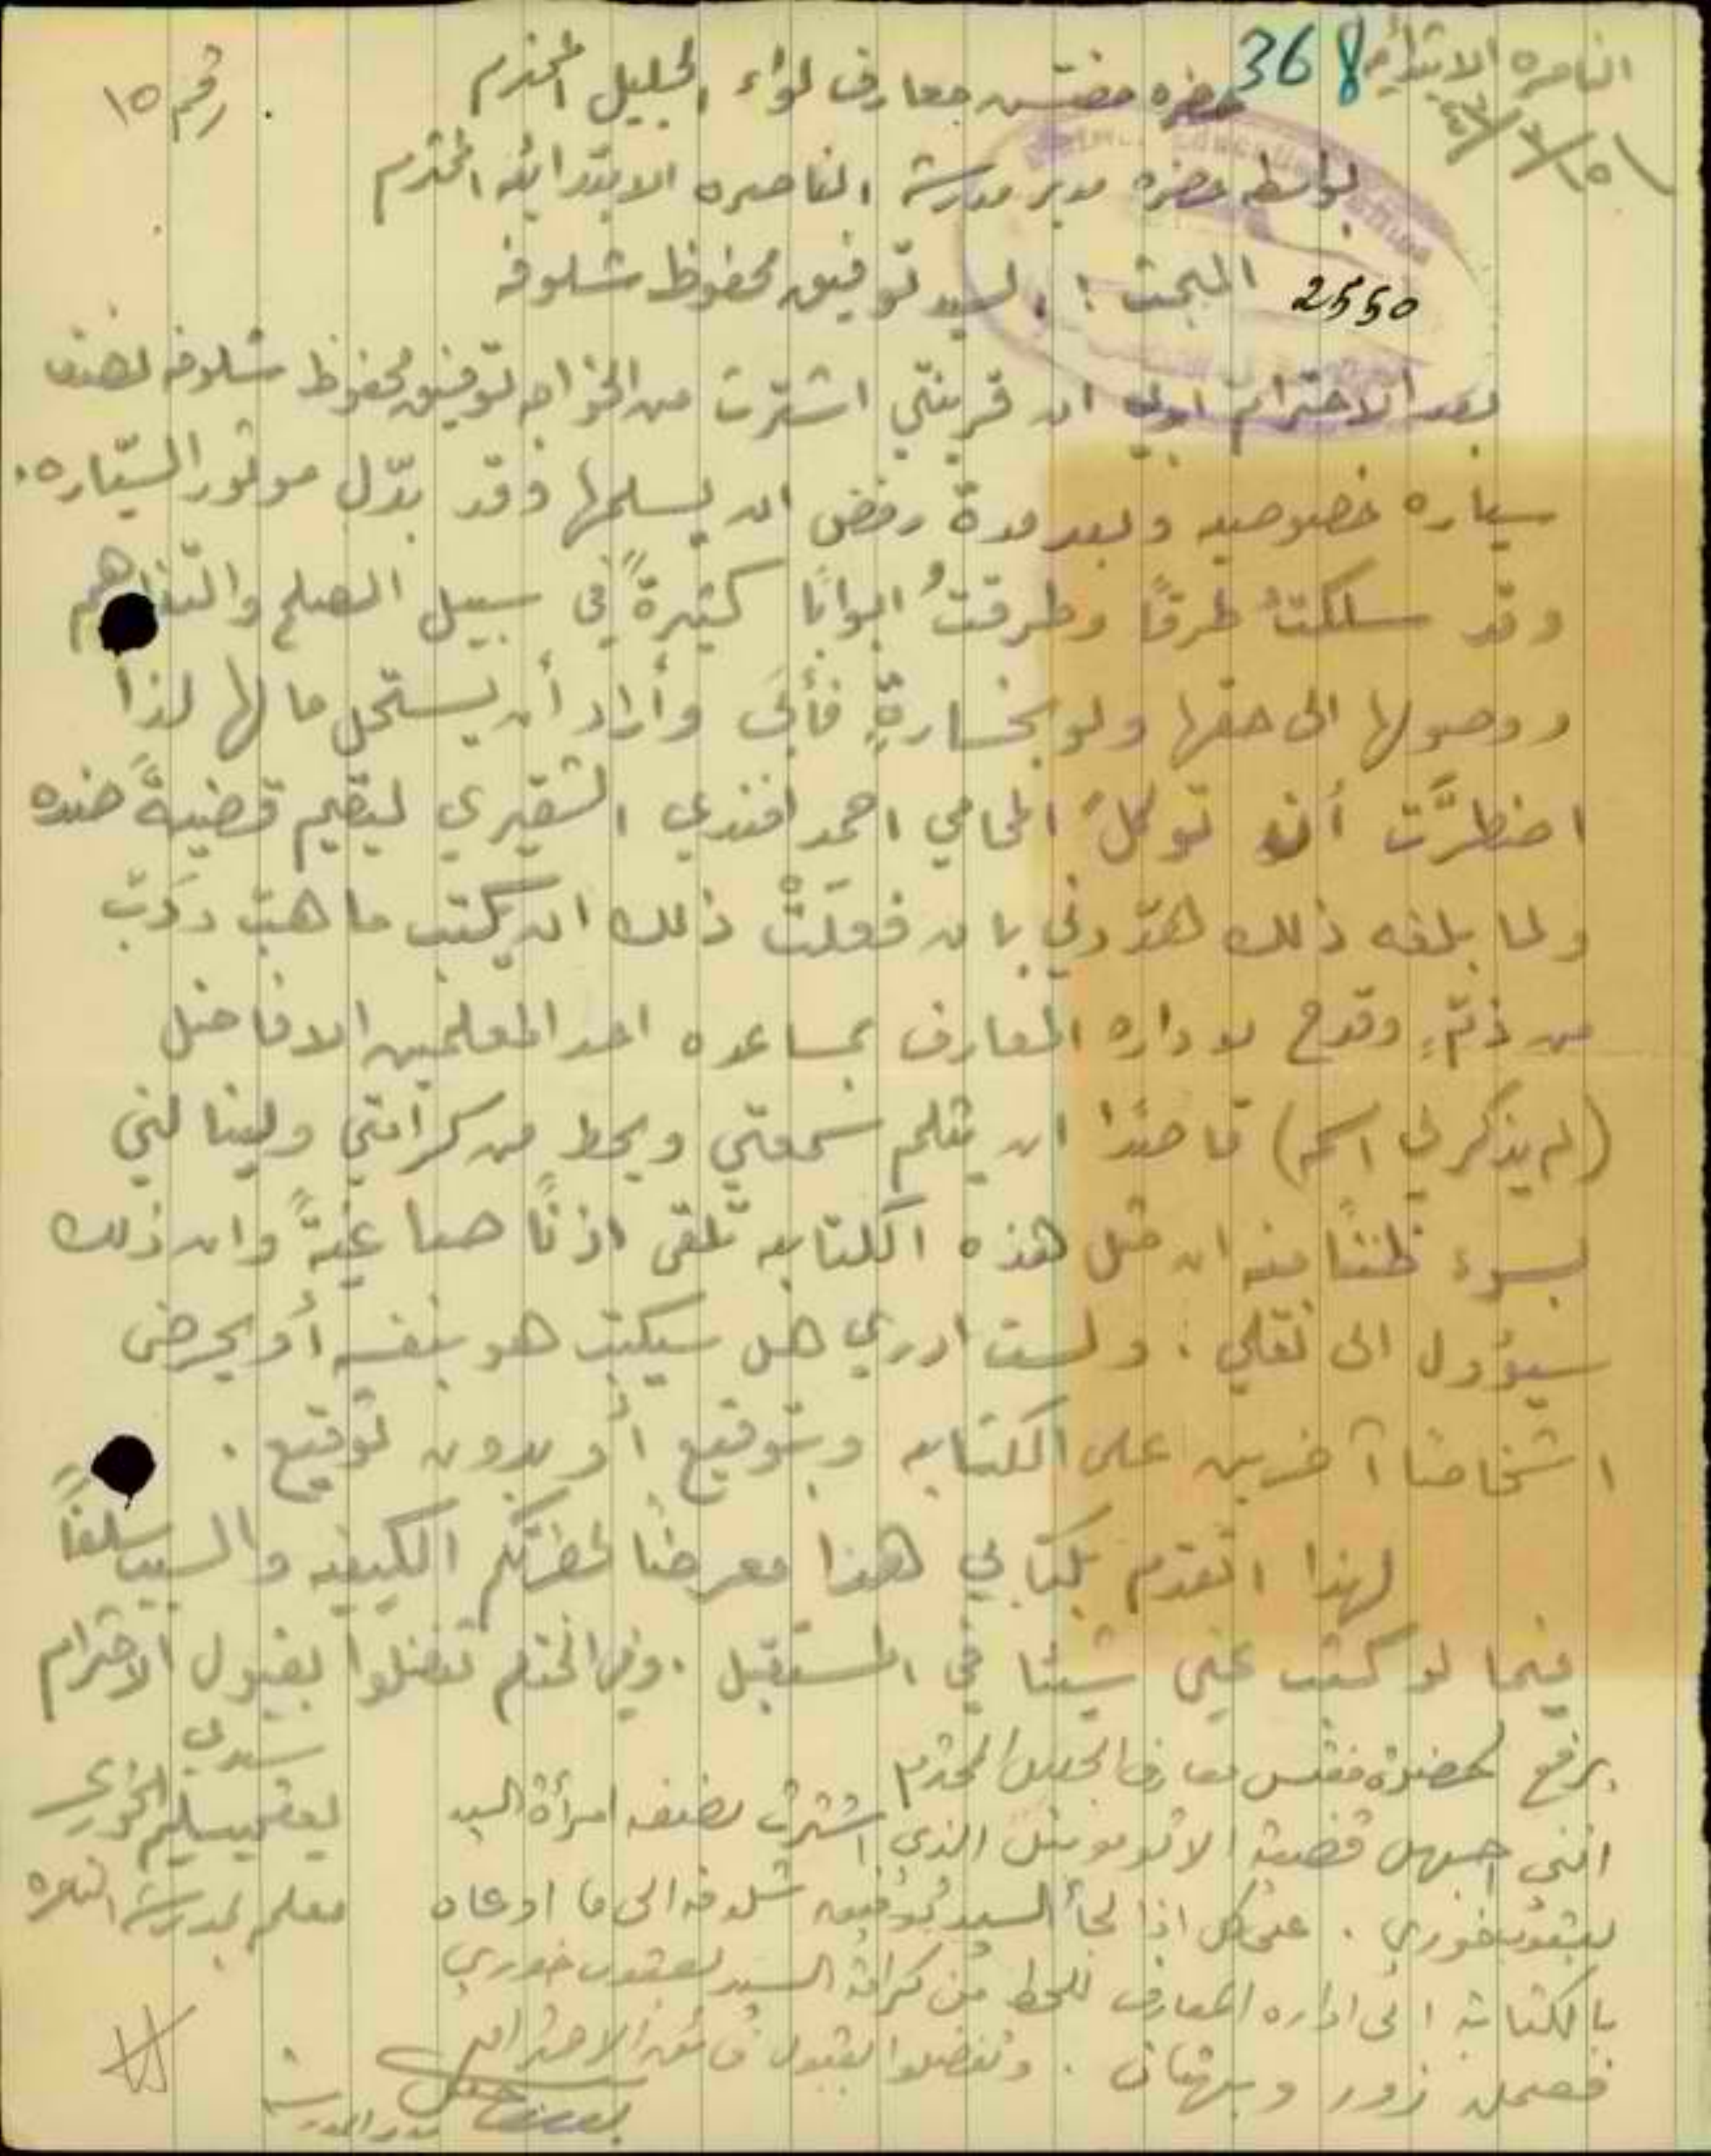 الناصره الابتدائيه
368
رقم ١٥
حضرة مفتش معارف لواء الجليل المحترم
بواسطه حضرة مدير مدرسة الناصره الابتدائيه المحترم
2550
المبحث : السيد توفيق محفوظ شلوفه
بعد الاحترام ان قرينتي اشترت من الخواجه توفيق محفوظ شلوفه نصف
سياره خصوصيه وبعد مدة رفض ان يسلمها وقد بدّل موتور السيّاره.
وقد سلكتُ طرقاً وطرقتُ ابواباً كثيرةً في سبيل الصلح والتفاهم
ووصولها الى حقها ولو بخسارةٍ فأبى وأراد أن يستحل مالها لذا
اضطرَّت أن توكل المحامي احمد افندي الشقيري ليقيم قضيةً ضده
ولما بلغه ذلك هدّدني بان فعلَتْ ذلك ان يكتب ما هبّ ودَبّ
من ذمّ وقدح لاداره المعارف بمساعده احد المعلمين الافاضل
(لم يذكر لي اسمه) قاصداً ان يثلم سمعتي ويحط من كرامتي وينالني
بسوء ظنناً منه ان مثل هذه الكتابه تلقى اذناً صاغيةً وان ذلك
سيؤول الى نقلي . ولست ادري هل سيكتب هو بنفسه أو يحرض
اشخاصا آخرين على الكتابه وبتوقيع أو بدون توقيع .
لهذا اتقدم بكتابي هذا معرضاً لحضرتكم الكيفيه والسبب سلفاً
فيما لو كتب عني شيئا في المستقبل . وفي الختام تفضلوا بقبول الاحترام
سيدي
يعقوب سليم الخوري
معلم بمدرسة الناصره
يرفع لحضرة مفتش معارف الجليل المحترم
انني اجهل قضية الاتوموبيل الذي اشترت نصفه امرأة السيد
يعقوب خوري . على كل اذا لجأ السيد توفيق شلوفه الى ما ادعاه
بالكتابة الى اداره المعارف للحط من كرامة السيد يعقوب خوري
فعمله زور وبهتان . وتفضلوا بقبول فائق الاحترام
مدير المدرسة